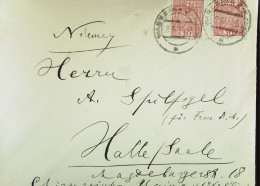 Niemcy
Herrn
A. Spilfogel
(für Frau D. A.)
Halle/Saale
Magdeburgerstr. 18